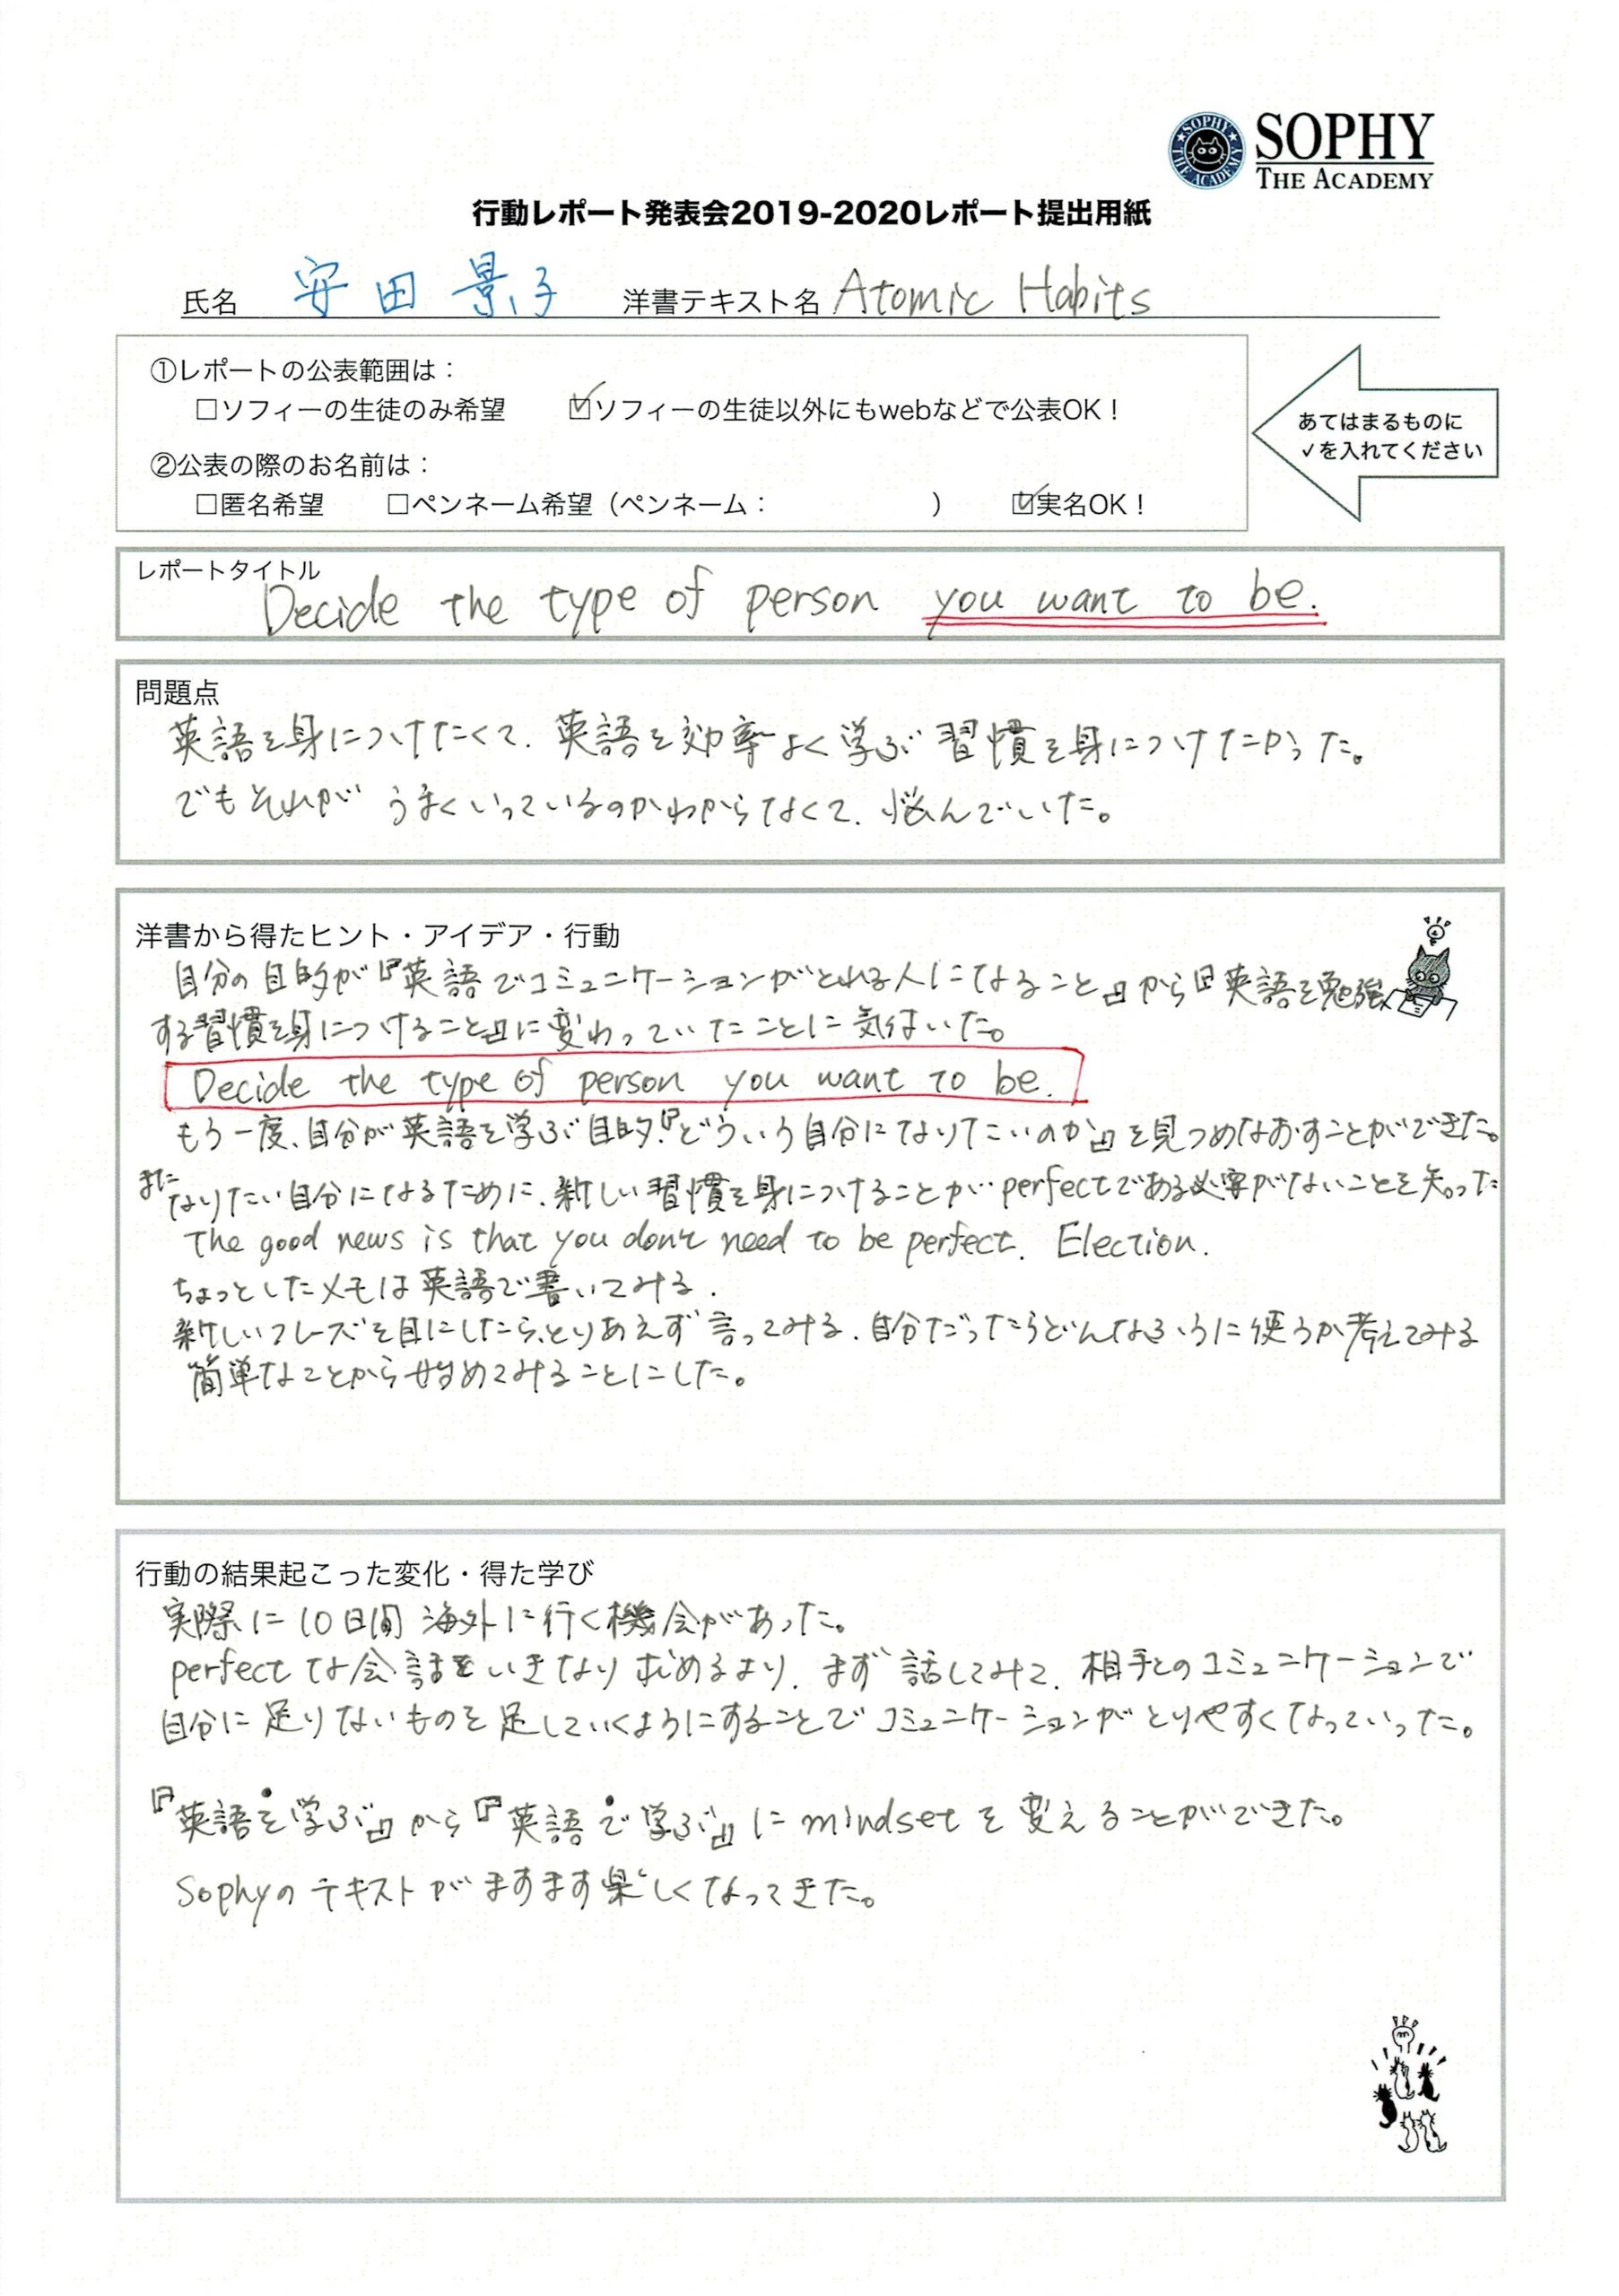 SOPHY
THE ACADEMY
行動レポート発表会2019-2020レポート提出用紙
氏名 安田 景子 洋書テキスト名 Atomic Habits
①レポートの公表範囲は：
□ソフィーの生徒のみ希望 ☑ソフィーの生徒以外にもwebなどで公表OK！
②公表の際のお名前は：
□匿名希望 □ペンネーム希望（ペンネーム： ） ☑実名OK！
あてはまるものに
✓を入れてください
レポートタイトル
Decide the type of person you want to be.
問題点
英語を身につけたくて、英語を効率よく学ぶ習慣を身につけたかった。
でもそれがうまくいっているのかわからなくて、悩んでいた。
洋書から得たヒント・アイデア・行動
自分の目的が『英語でコミュニケーションがとれる人になること』から『英語を勉強
する習慣を身につけること』に変わっていたことに気付いた。
Decide the type of person you want to be.
もう一度、自分が英語を学ぶ目的、『どういう自分になりたいのか』を見つめなおすことができた。
また
なりたい自分になるために、新しい習慣を身につけることが perfectである必要がないことを知った
The good news is that you don't need to be perfect. Election.
ちょっとしたメモは英語で書いてみる.
新しいフレーズを目にしたら、とりあえず言ってみる. 自分だったらどんなふうに使うか考えてみる
簡単なことから始めてみることにした。
行動の結果起こった変化・得た学び
実際に10日間海外に行く機会があった。
perfectな会話をいきなり求めるより、まず話してみて、相手とのコミュニケーションで
自分に足りないものを足していくようにすることでコミュニケーションがとりやすくなっていった。
『英語を学ぶ』から『英語で学ぶ』にmindsetを変えることができた。
Sophyのテキストがますます楽しくなってきた。